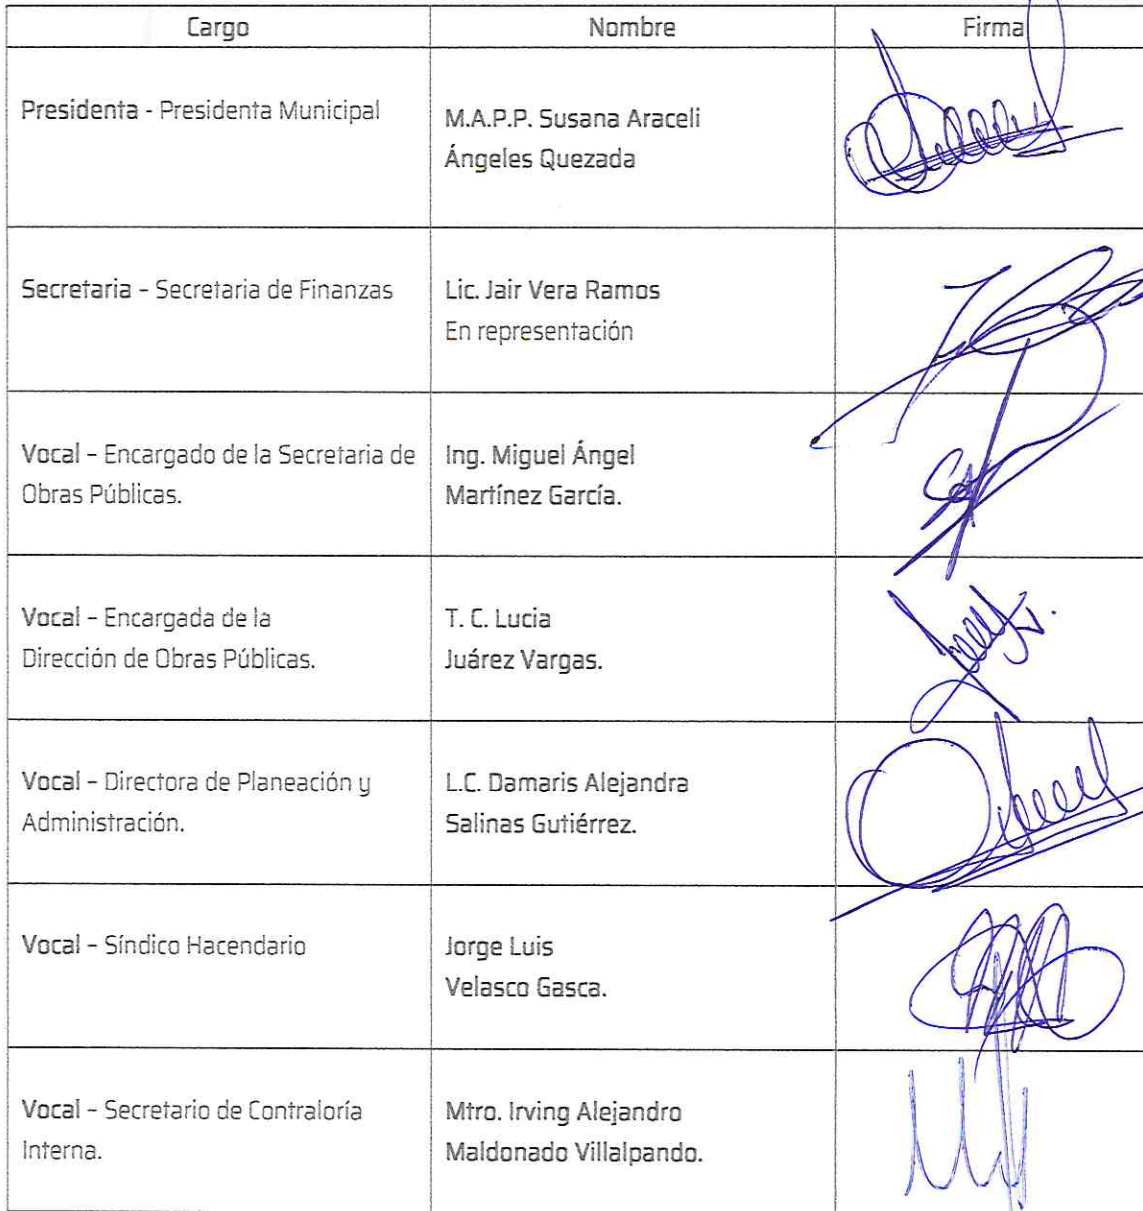 Cargo Nombre Firma
Presidenta - Presidenta Municipal
M.A.P.P. Susana Araceli
Ángeles Quezada
Secretaria - Secretaria de Finanzas
Lic. Jair Vera Ramos
En representación
Vocal - Encargado de la Secretaria de
Obras Públicas.
Ing. Miguel Ángel
Martínez García.
Vocal - Encargada de la
Dirección de Obras Públicas.
T. C. Lucia
Juárez Vargas.
Vocal - Directora de Planeación y
Administración.
L.C. Damaris Alejandra
Salinas Gutiérrez.
Vocal - Síndico Hacendario
Jorge Luis
Velasco Gasca.
Vocal - Secretario de Contraloría
Interna.
Mtro. Irving Alejandro
Maldonado Villalpando.